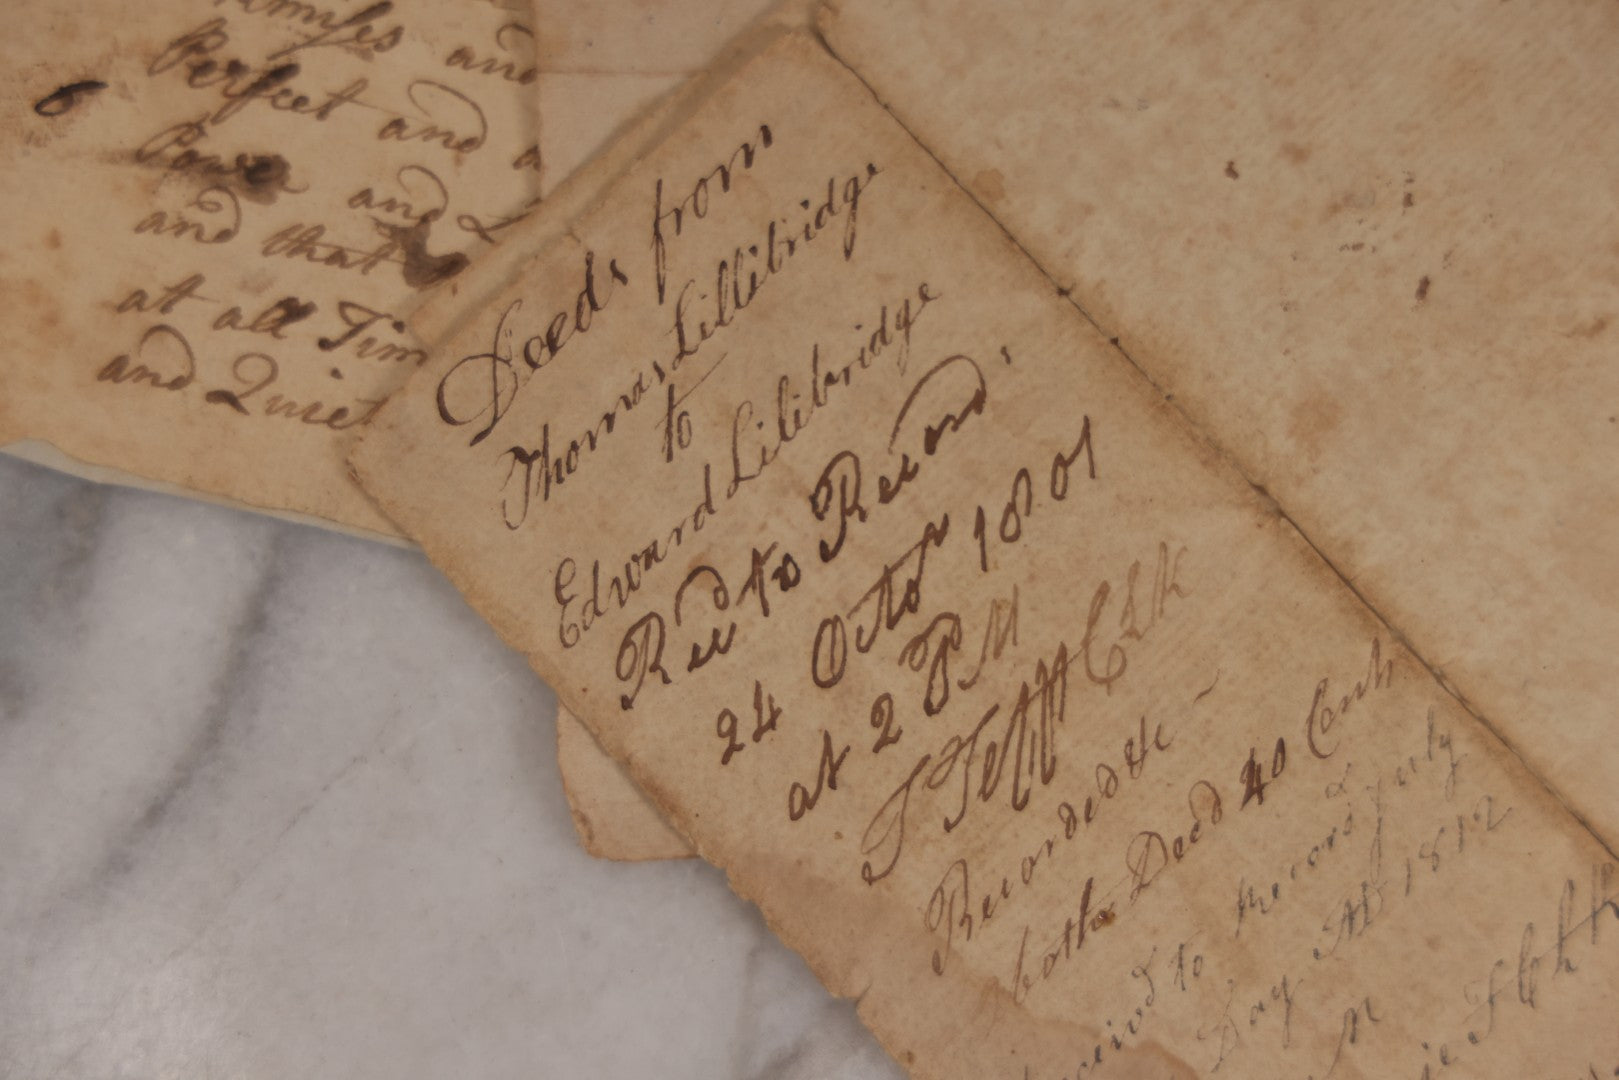 and
Perfect and
Power and
and that
at all Tim
and Quiet
Deeds from
Thomas Lillibridge
to
Edward Lilibridge
Recd to Record
24 Octor 1801
at 2 PM
T Tefft Clk
Recorded &c
both Deed 40 Cents
to Record July
Day AD 1812
M